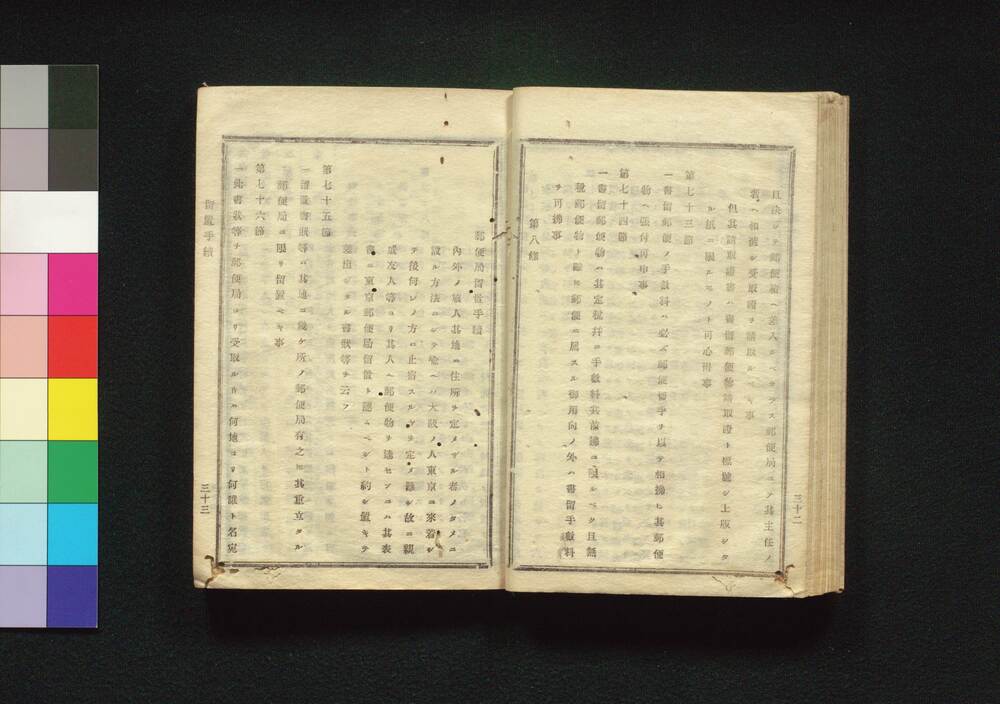 且決シテ郵便箱ヘ差入ルベカラス郵便局ニテ其主任ノ
者ヘ相渡シ受取證ヲ請取ルベキ事
但其請取證書ハ書留郵便物請取證ト標號シ上版シタ
ル紙ニ限ルモノト可心得事
第七十三節
一書留郵便ノ手數料ハ必ス郵便切手ヲ以テ相拂ヒ其郵便
物ヘ張付可申事
第七十四節
一書留郵便物ハ其定税幷ニ手數料共前拂ニ限ルベク且無
税郵便物ト雖モ郵便ニ屬スル御用向ノ外ハ書留手數料
ヲ可拂事
第八條
三十二
郵便局留置手續
內外ノ旅人其地ニ住所ヲ定メザル者ノタメニ
設ル方法ニシテ譬ヘバ大坂ノ人東京ニ來着シ
テ後何レノ方ニ止宿スルヤヲ定メ難シ故ニ親
戚友人等ヨリ其人ヘ郵便物ヲ達セソニハ其表
書ニ東京郵便局留置ト認ムベシト約シ置キテ
差出シタル書狀等ヲ云フ
第七十五節
一留置書狀等ハ其地ニ幾ケ所ノ郵便局有之モ其重立タル
郵便局ニ限リ留置ベキ事
第七十六節
一此書狀等ヲ郵便局ヨリ受取ルニハ何地ヨリ何誰ト名宛
留置手續
三十三